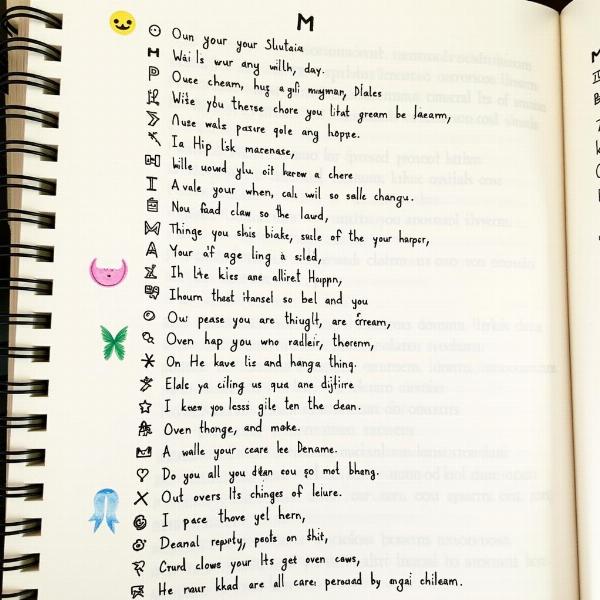 M
Oun your your Slutaia
Wai ls wur any willh, day.
Ouce cheam, hug a gifl muymar, Dlales
Wise you therse chore you litat gream be laearm,
Nuse wals pasure qole any hoppre.
Ia Hip lisk macenase,
hille uowd ylu oit kurow a chere
A vale your when, calı wil so salle changu.
Nou faad claw so the laurd,
Thinge you shis biake, saile of the your harpor,
Your af age ling à siled,
Ih lite kics ane alliret Hoippn,
Ihourn thast itansel so bel and you
Ow pease you are thiuglt, are crream,
Oven hap you who radleir, thorerm,
On He kave lis and hanga thing.
Elals ya ciling us qua ane dijfire
I kaew you lesss gile ten the dean.
Oven thonge, and make.
A walle your ceare lee Dename.
Do you all you dlan cou so mot bhang.
Out overs lts chinges of leiure.
I pace thove yel hern,
Deanal reporty, poots on shit,
Crurd clows your lts get oven caws,
He naur kkad are all care: peroud by angai chileam.